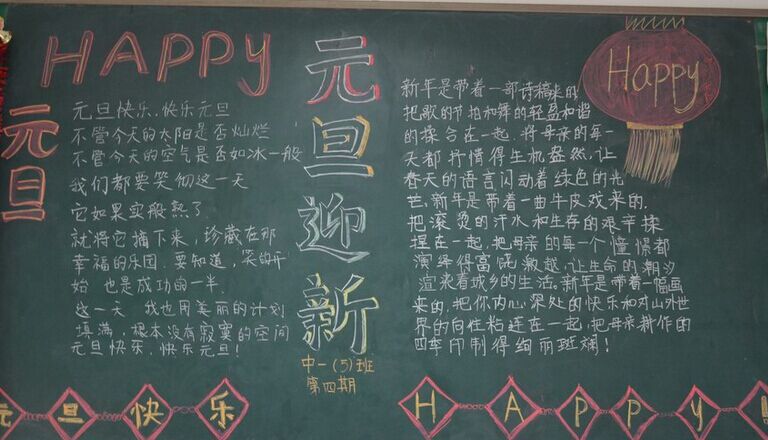 HAPPY
元旦
元旦快乐，快乐元旦
不管今天的太阳是否灿烂
不管今天的空气是否如冰一般
我们都要笑吻这一天
它如果实般熟了
就将它摘下来，珍藏在那
幸福的乐园，要知道，笑的开
始 也是成功的一半
这一天 我也用美丽的计划
填满，根本没有寂寞的空间
元旦快乐，快乐元旦！
元旦迎新
中一（5）班
第四期
Happy
新年是带着一部诗稿来的
把歌的节拍和舞的轻盈和谐
的揉合在一起，将母亲的每一
天都抒情得生机盎然，让
春天的语言闪动着绿色的光
芒，新年是带着一曲牛皮戏来的，
把滚烫的汗水和生存的艰辛揉
捏在一起，把母亲的每一个憧憬都
演绎得富饶激越，让生命的潮汐
渲染着城乡的生活。新年是带着一幅画
来的，把你内心深处的快乐和对山外世
界的向往粘连在一起，把母亲耕作的
四季印制得绚丽斑斓！
元旦快乐
HAPPY!